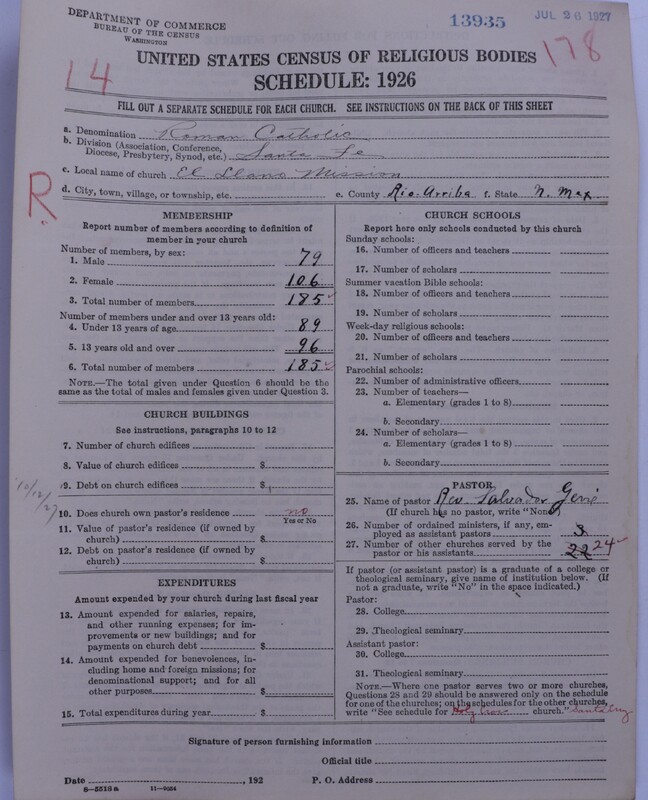 DEPARTMENT OF COMMERCE
BUREAU OF THE CENSUS
WASHINGTON
13935
JUL 26 1927
14
178
UNITED STATES CENSUS OF RELIGIOUS BODIES
SCHEDULE: 1926
FILL OUT A SEPARATE SCHEDULE FOR EACH CHURCH. SEE INSTRUCTIONS ON THE BACK OF THIS SHEET
R
a. Denomination Roman Catholic
b. Division (Association, Conference,
Diocese, Presbytery, Synod, etc.) Santa Fe
c. Local name of church El Llano Mission
d. City, town, village, or township, etc. e. County Rio-Arriba f. State N. Mex
MEMBERSHIP
Report number of members according to definition of
member in your church
Number of members, by sex:
1. Male 79
2. Female 106
3. Total number of members 185
Number of members under and over 13 years old:
4. Under 13 years of age 89
5. 13 years old and over 96
6. Total number of members 185
NOTE.—The total given under Question 6 should be
same as the total of males and females given under Question 3.
CHURCH BUILDINGS
See instructions, paragraphs 10 to 12
7. Number of church edifices
8. Value of church edifices $
9. Debt on church edifices $
10/12/27
10. Does church own pastor's residence no
Yes or No
11. Value of pastor's residence (if owned by
church) $
12. Debt on pastor's residence (if owned by
church) $
EXPENDITURES
Amount expended by your church during last fiscal year
13. Amount expended for salaries, repairs,
and other running expenses; for im-
provements or new buildings; and for
payments on church debt $
14. Amount expended for benevolences, in-
cluding home and foreign missions; for
denominational support; and for all
other purposes $
15. Total expenditures during year $
CHURCH SCHOOLS
Report here only schools conducted by this church
Sunday schools:
16. Number of officers and teachers
17. Number of scholars
Summer vacation Bible schools:
18. Number of officers and teachers
19. Number of scholars
Week-day religious schools:
20. Number of officers and teachers
21. Number of scholars
Parochial schools:
22. Number of administrative officers
23. Number of teachers—
a. Elementary (grades 1 to 8)
b. Secondary
24. Number of scholars—
a. Elementary (grades 1 to 8)
b. Secondary
PASTOR
25. Name of pastor Rev. Salvador Gené
(If church has no pastor, write "None")
26. Number of ordained ministers, if any, em-
ployed as assistant pastors 3
27. Number of other churches served by the
pastor or his assistants 22 24
If pastor (or assistant pastor) is a graduate of a college or
theological seminary, give name of institution below. (If
not a graduate, write "No" in the space indicated.)
Pastor:
28. College
29. Theological seminary
Assistant pastor:
30. College
31. Theological seminary
NOTE.—Where one pastor serves two or more churches,
Questions 28 and 29 should be answered only on the schedule
for one of the churches; on the schedules for the other churches,
write "See schedule for Holy Cross church." Santa Cruz
Signature of person furnishing information
Official title
Date , 192 P. O. Address
8—5518 a 11—9054